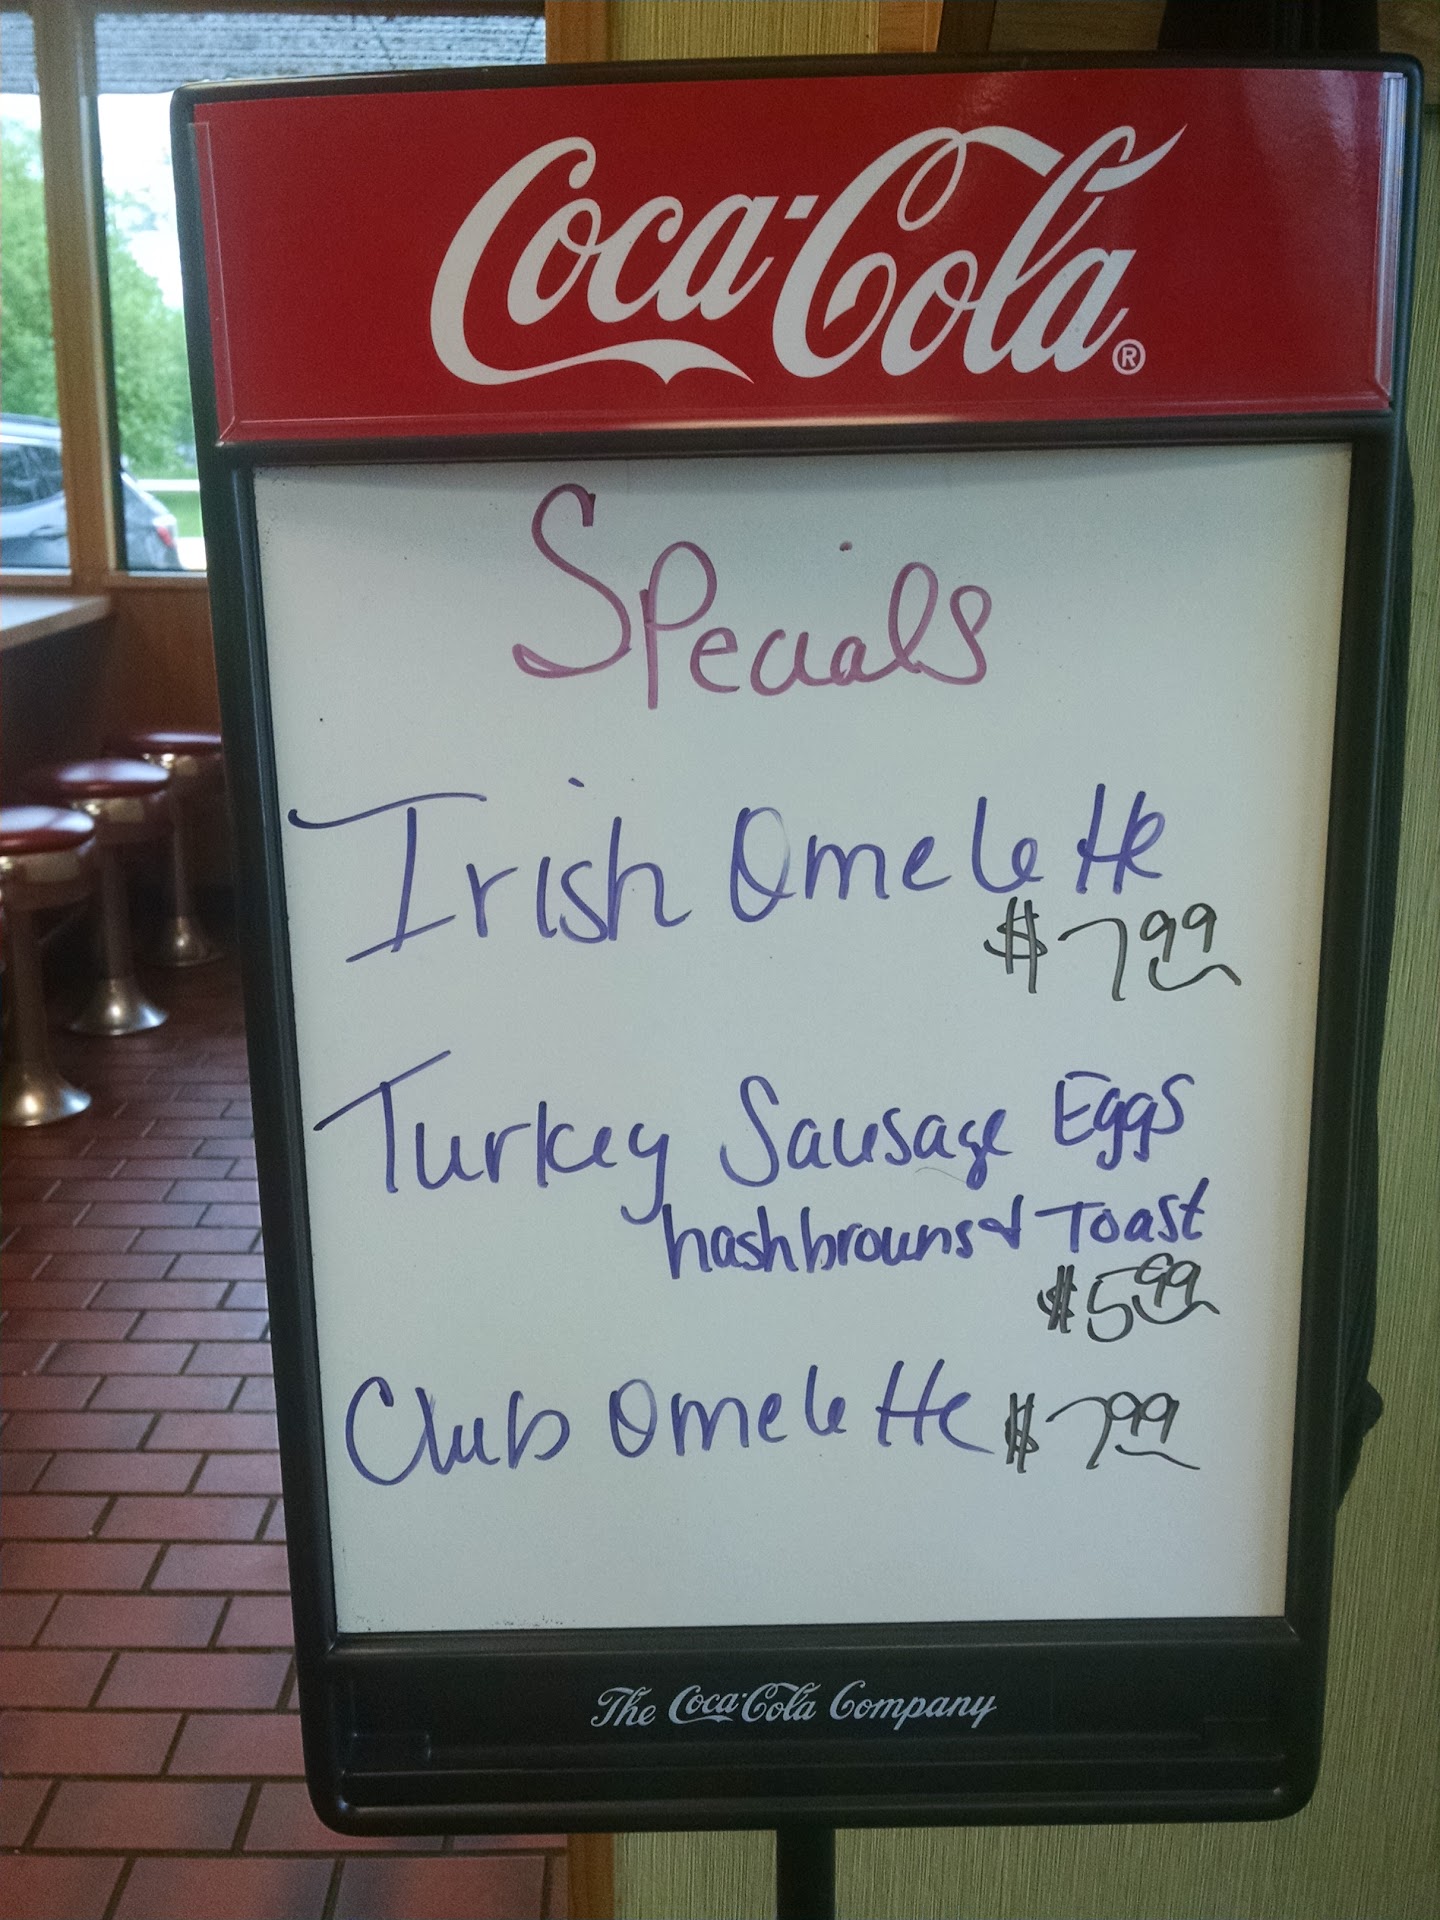 Coca-Cola®
Specials
Irish Omelette
$7.99
Turkey Sausage Eggs
hashbrowns & Toast
$5.99
Club Omelette $7.99
The Coca-Cola Company